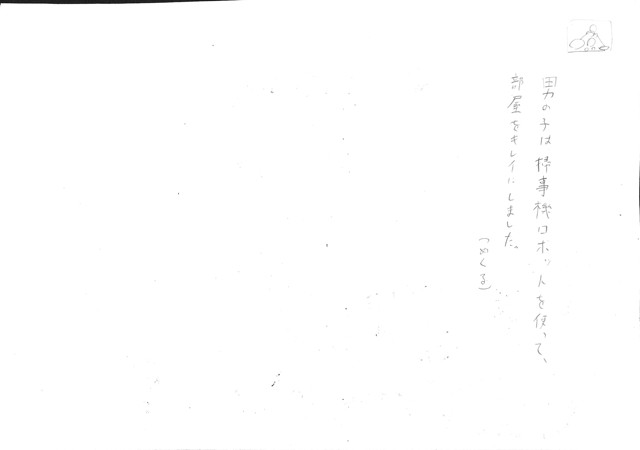 男の子は掃事機ロボットを使って、
部屋をキレイにしました。
(めくる)